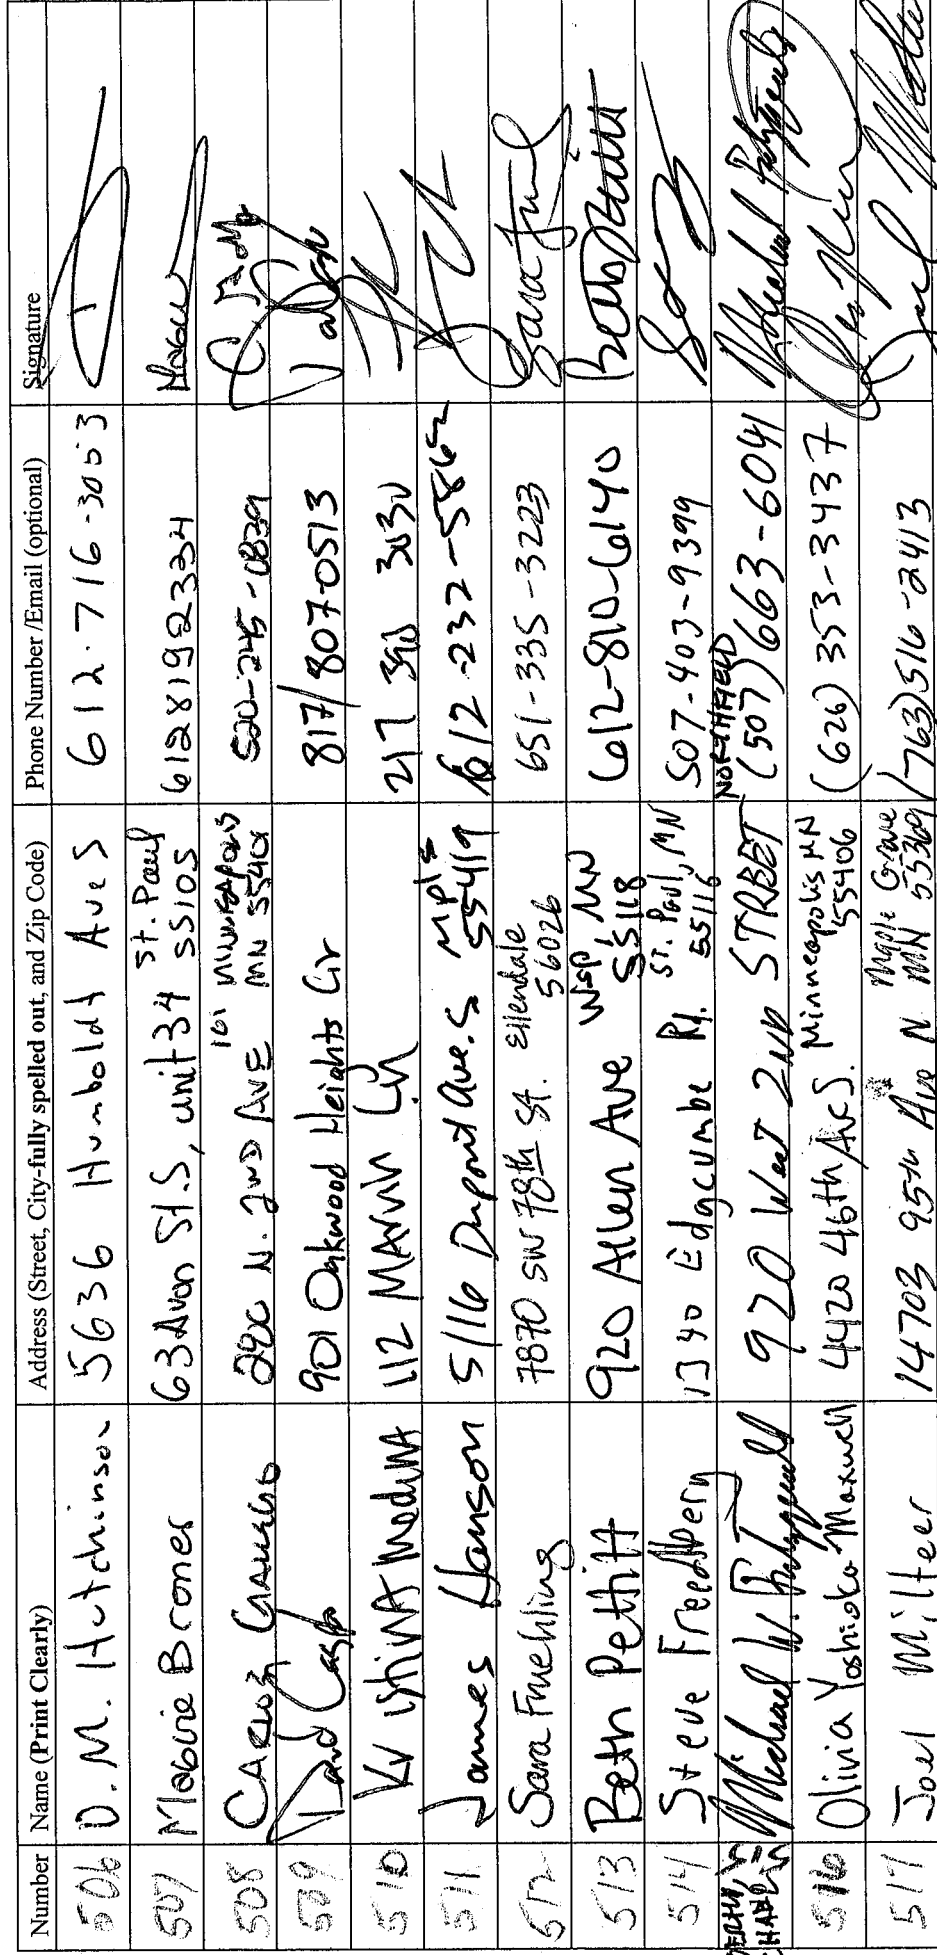 Number Name (Print Clearly) Address (Street, City-fully spelled out, and Zip Code) Phone Number /Email (optional) Signature
506 D. M. Hutchinson 5636 Humboldt Ave S 612-716-3053
507 Maggie Broner 63 Avon St. S, unit 34 St. Paul 55105 6128192334
508 Carlos 290 N. 2ND AVE 101 MINNEAPOLIS MN 55401 520-245-0839
509 David 901 Oakwood Heights Cir 817/807-0513
510 KristinA ModunA 112 MArvin Ln 217 390 3030
511 James Hanson 5116 Dupont Ave. S Mpls 55419 612-232-5862
512 Sara Fruehling 7870 SW 78th St. Ellendale 56026 651-335-3223
513 Beth Pettitt 920 Allen Ave WSP, MN 55118 612-810-6140 Beth Pettitt
514 Steve Freedberg 1340 Edgcumbe Rd. ST. Paul, MN 55116 507-403-9399
Michael W. Fitzgerald 920 West 2ND STREET NORTHFIELD (507) 663-6041 Michael Fitzgerald
516 Olivia Yoshioko Maxwell 4420 46th Ave S. Minneapolis MN 55406 (626) 353-3437
517 Joel Milteer 14703 95th Ave N Maple Grove MN 55369 (763) 516-2413